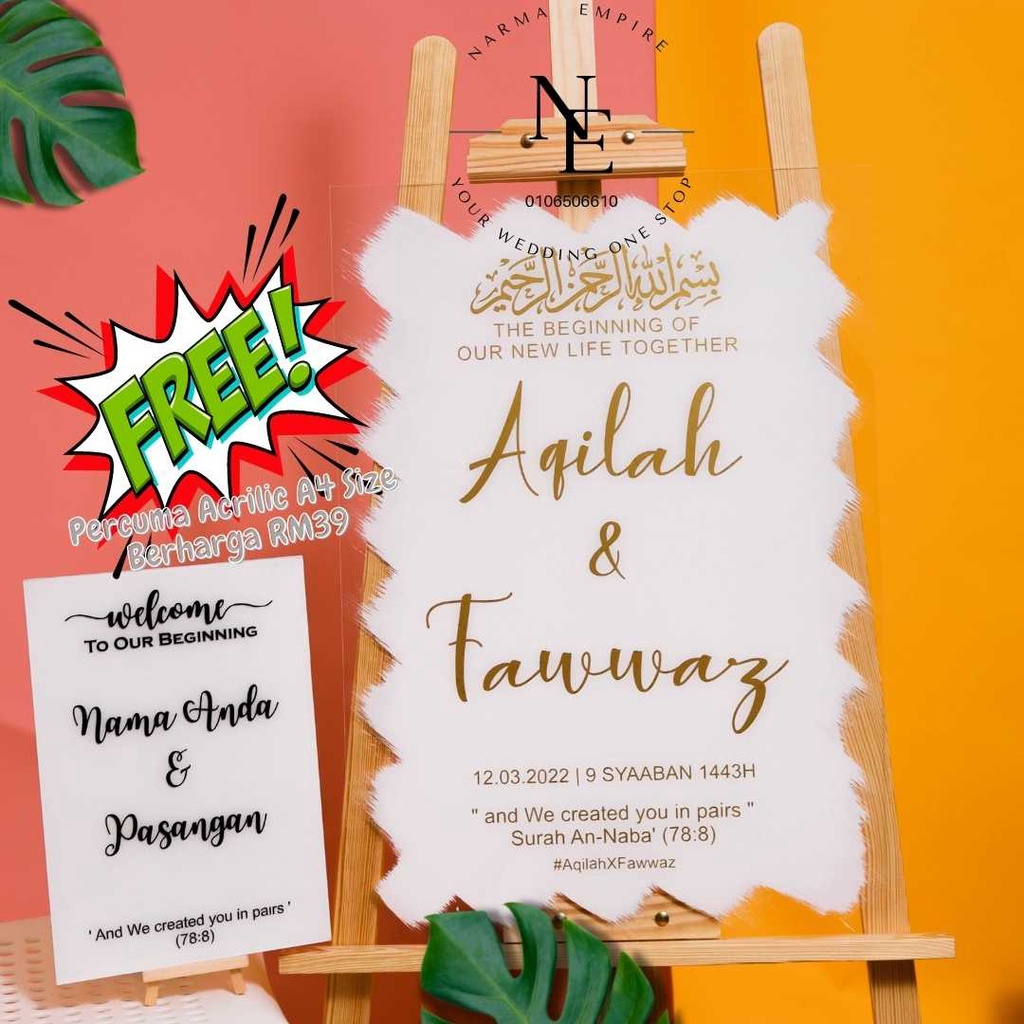 NARMA EMPIRE
NE
0106506610
YOUR WEDDING ONE STOP
بسم الله الرحمن الرحيم
THE BEGINNING OF
OUR NEW LIFE TOGETHER
Aqilah
&
Fawwaz
12.03.2022 | 9 SYAABAN 1443H
" and We created you in pairs "
Surah An-Naba' (78:8)
#AqilahXFawwaz
FREE!
Percuma Acrilic A4 Size
Berharga RM39
welcome
TO OUR BEGINNING
Nama Anda
&
Pasangan
' And We created you in pairs '
(78:8)